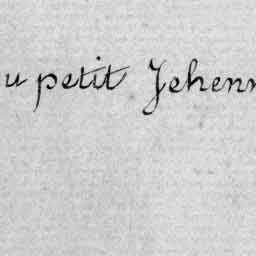 u petit Jehenn